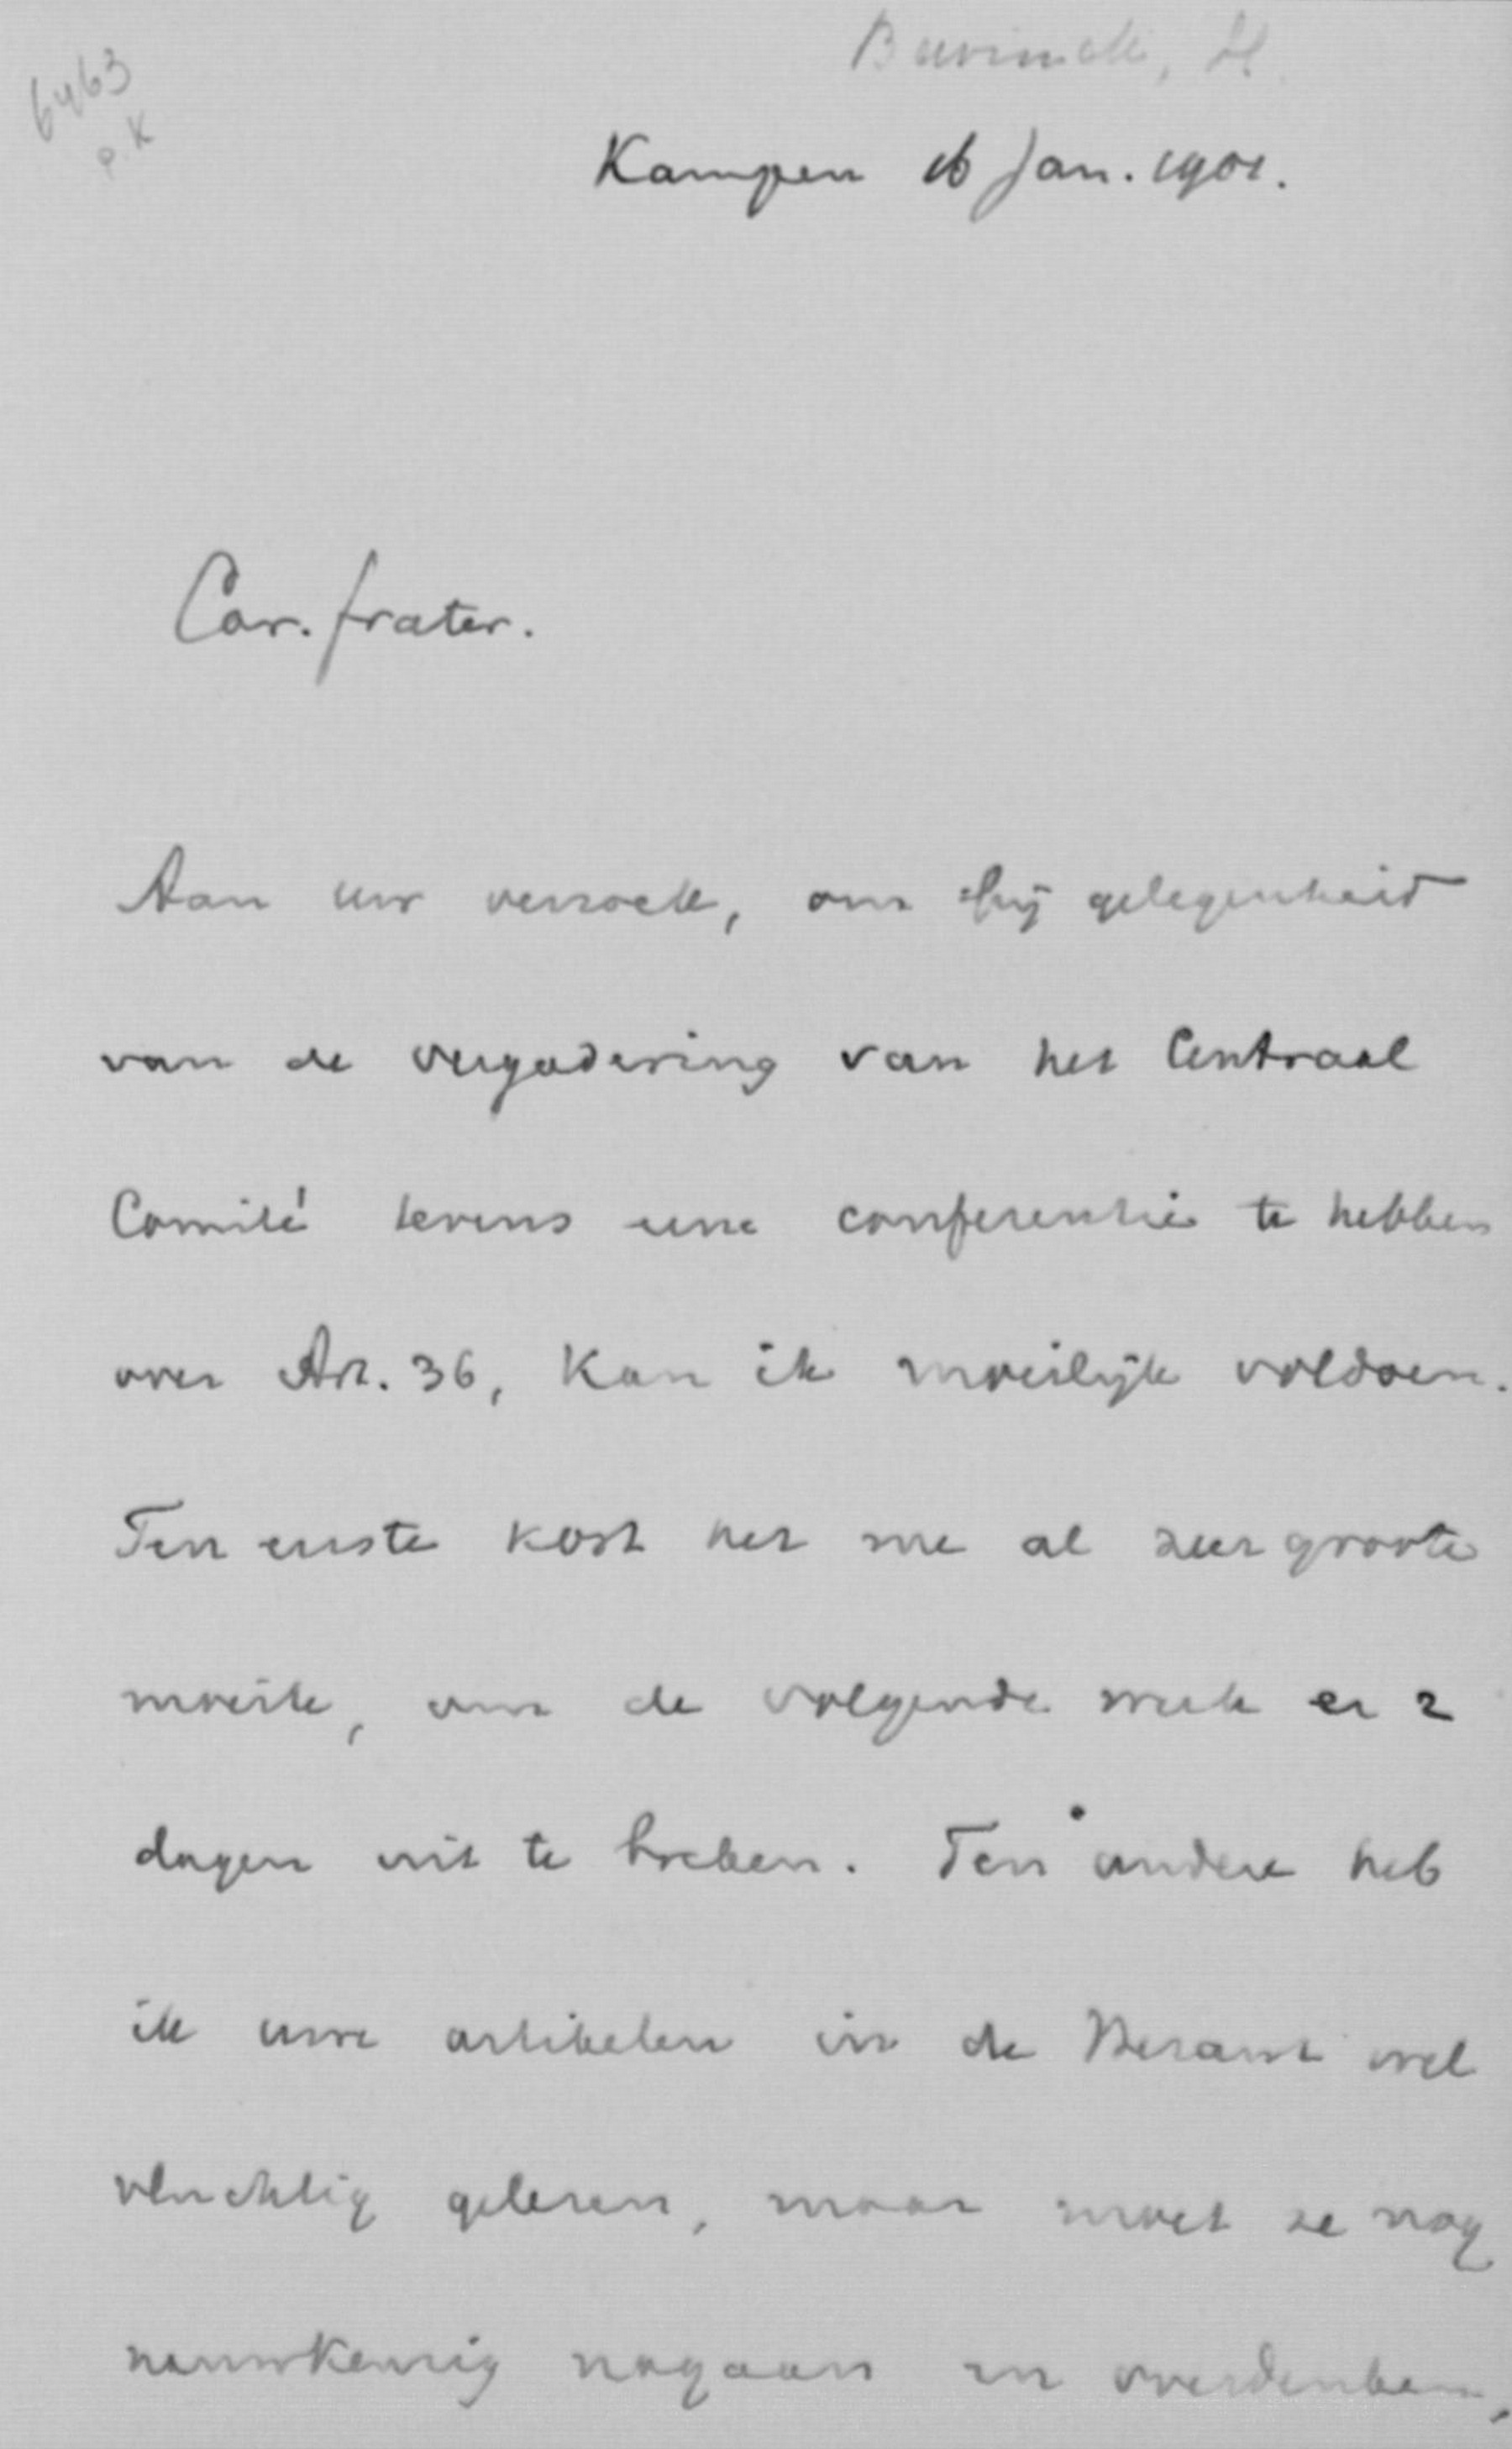 Bavinck, H.
6463
P. K
Kampen 16 Jan. 1901.
Car. frater.
Aan uw verzoek, om bij gelegenheid
van de vergadering van het Centraal
Comité tevens eene conferentie te hebben
over Art. 36, kan ik moeilijk voldoen.
Ten eerste kost het me al zeer groote
moeite, om de volgende week er 2
dagen uit te breken. Ten andere heb
ik uwe artikelen in de Heraut wel
vluchtig gelezen, maar moet ze nog
nauwkeurig nagaan en overdenken,